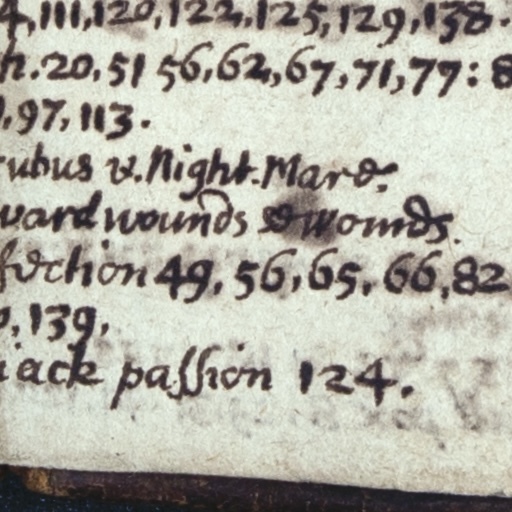 4, 111, 120, 122, 125, 129, 138.
n. 20, 51 56, 62, 67, 71, 77: 8
, 97, 113.
ubus v. Night. Mare.
ward wounds wounds.
fection 49, 56, 65, 66, 82
, 139,
iack passion 124.